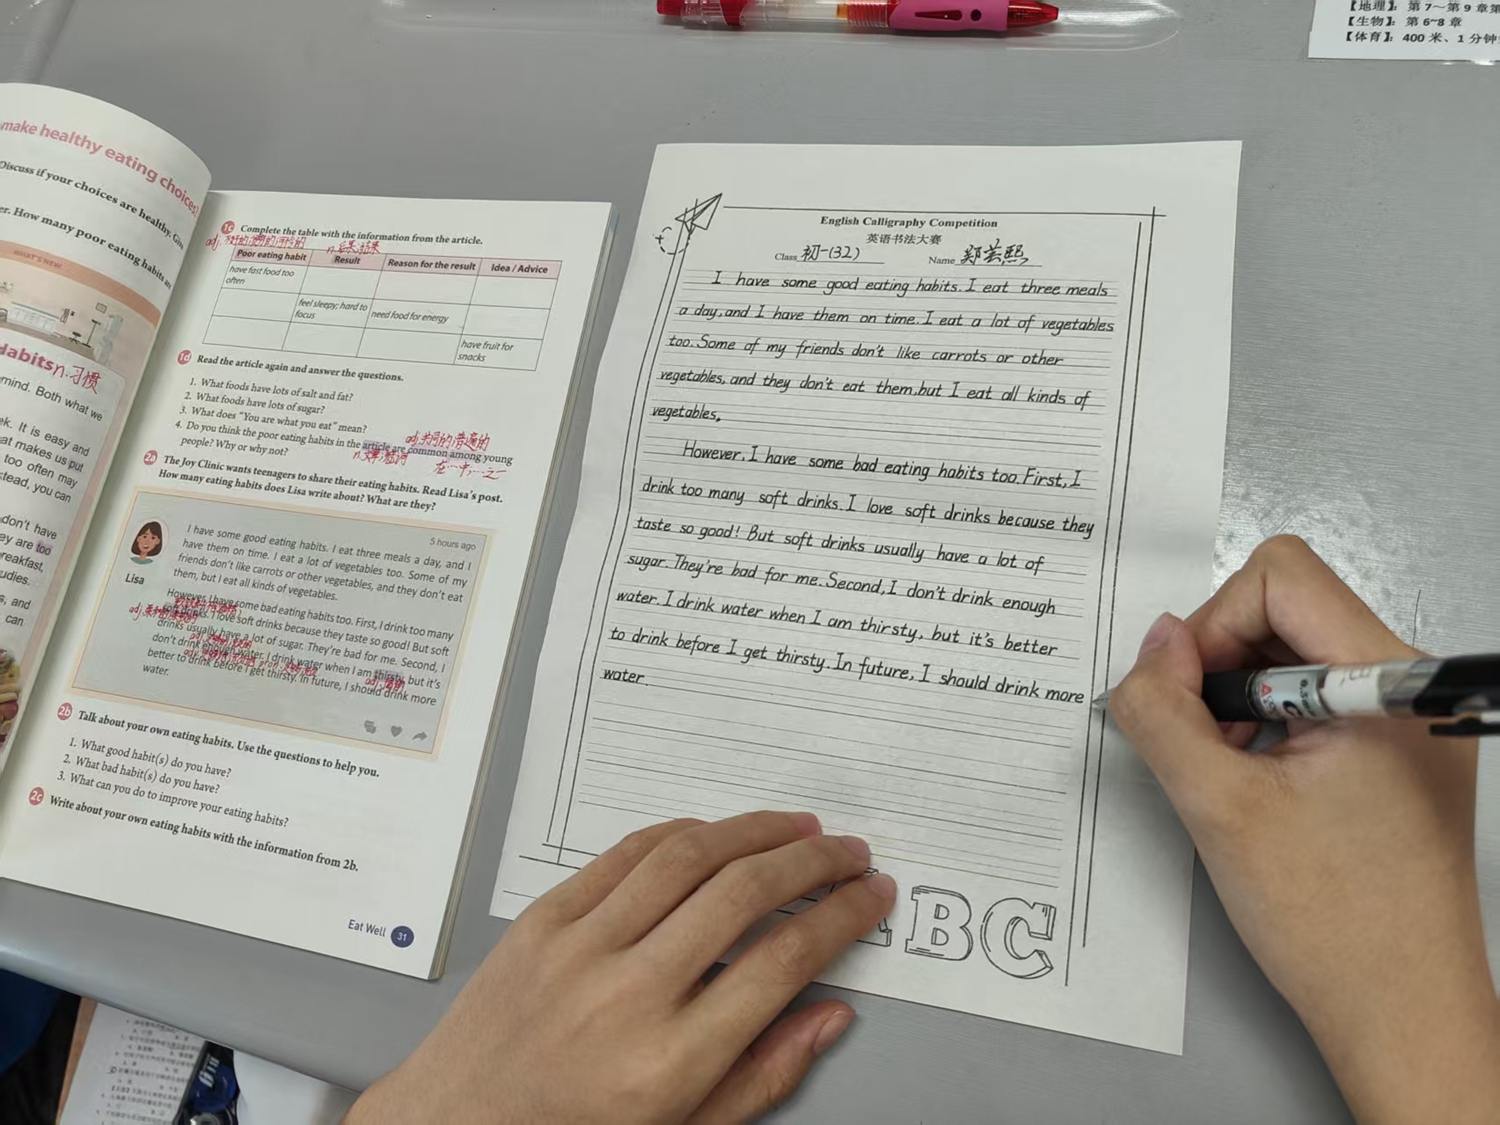 make healthy eating choices
Discuss if your choices are healthy.
er. How many poor eating habits
WHAT'S NEW
Habits n.习惯
mind. Both what we
ek. It is easy and
at makes us put
too often may
stead, you can
don't have
ey are too
breakfast,
udies.
s, and
can
1c Complete the table with the information from the article.
Poor eating habit Result Reason for the result Idea / Advice
have fast food too often
feel sleepy; hard to focus need food for energy
have fruit for snacks
1d Read the article again and answer the questions.
1. What foods have lots of salt and fat?
2. What foods have lots of sugar?
3. What does "You are what you eat" mean?
adj.共同的;普遍的
4. Do you think the poor eating habits in the article are common among young
people? Why or why not?
在…中,…之一
2a The Joy Clinic wants teenagers to share their eating habits. Read Lisa's post.
How many eating habits does Lisa write about? What are they?
5 hours ago
Lisa
I have some good eating habits. I eat three meals a day, and I
have them on time. I eat a lot of vegetables too. Some of my
friends don't like carrots or other vegetables, and they don't eat
them, but I eat all kinds of vegetables.
However, I have some bad eating habits too. First, I drink too many
soft drinks. I love soft drinks because they taste so good! But soft
drinks usually have a lot of sugar. They're bad for me. Second, I
don't drink enough water. I drink water when I am thirsty, but it's
better to drink before I get thirsty. In future, I should drink more
water.
2b Talk about your own eating habits. Use the questions to help you.
1. What good habit(s) do you have?
2. What bad habit(s) do you have?
3. What can you do to improve your eating habits?
2c Write about your own eating habits with the information from 2b.
Eat Well 31
English Calligraphy Competition
英语书法大赛
Class 初一(32) Name 郑芸熙
I have some good eating habits. I eat three meals
a day, and I have them on time. I eat a lot of vegetables
too. Some of my friends don't like carrots or other
vegetables, and they don't eat them, but I eat all kinds of
vegetables.
However, I have some bad eating habits too. First, I
drink too many soft drinks. I love soft drinks because they
taste so good! But soft drinks usually have a lot of
sugar. They're bad for me. Second, I don't drink enough
water. I drink water when I am thirsty, but it's better
to drink before I get thirsty. In future, I should drink more
water.
ABC
【地理】：第 7～第 9 章第
【生物】：第 6~8 章
【体育】：400 米、1 分钟